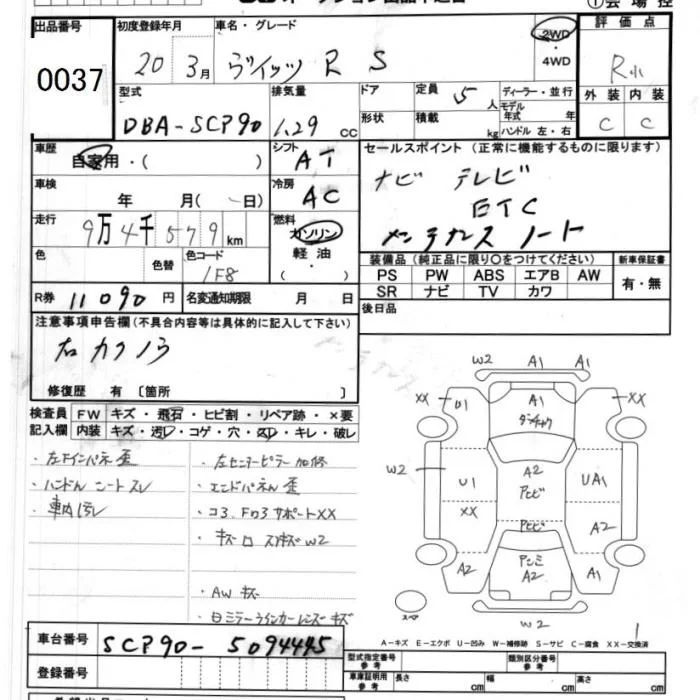 出品番号 0037
初度登録年月 20 3月
車名・グレード ヴィッツ R S
2WD
・
4WD
評価点 R
外装 内装
C C
型式 DBA-SCP90
排気量 1.29 cc
ドア
形状
定員 5人
積載 kg
ディーラー・並行
モデル
年式 年
ハンドル 左・右
車歴 自家用・( )
シフト AT
車検 年 月( 日)
冷房 AC
走行 9万4千579km
燃料 ガソリン
軽油
( ・ )
色 色替
色コード 1F8
R券 11090円
名変通知期限 月 日
セールスポイント (正常に機能するものに限ります)
ナビ テレビ
ETC
メンテナンスノート
装備品(純正品に限り○をつけてください)
PS PW ABS エアB AW
SR ナビ TV カワ
新車保証書
有・無
後日品
注意事項申告欄(不具合内容等は具体的に記入して下さい)
修復歴 有 〔箇所 〕
検査員 FW キズ・飛石・ヒビ割・リペア跡・×要
記入欄 内装 キズ・汚レ・コゲ・穴・スレ・キレ・破レ
・左下インパネ歪
・ハンドル シートスレ
・車内汚レ
・左センターピラー加修
・エンドパネル歪
・コ3.Fワ3サポートXX
・AW キズ
W2 A1 A1
XX U1 A1 XX
W2 U1 A2 UA1
XX A2
A2 A2 A1
スペア W2
A-キズ E-エクボ U-凹み W-補修跡 S-サビ C-腐食 XX-交換済
車台番号 SCP90-5094445
登録番号
型式指定番号
参考
類別区分番号
参考
車庫証明用
参考
長さ cm 幅 cm 高さ cm